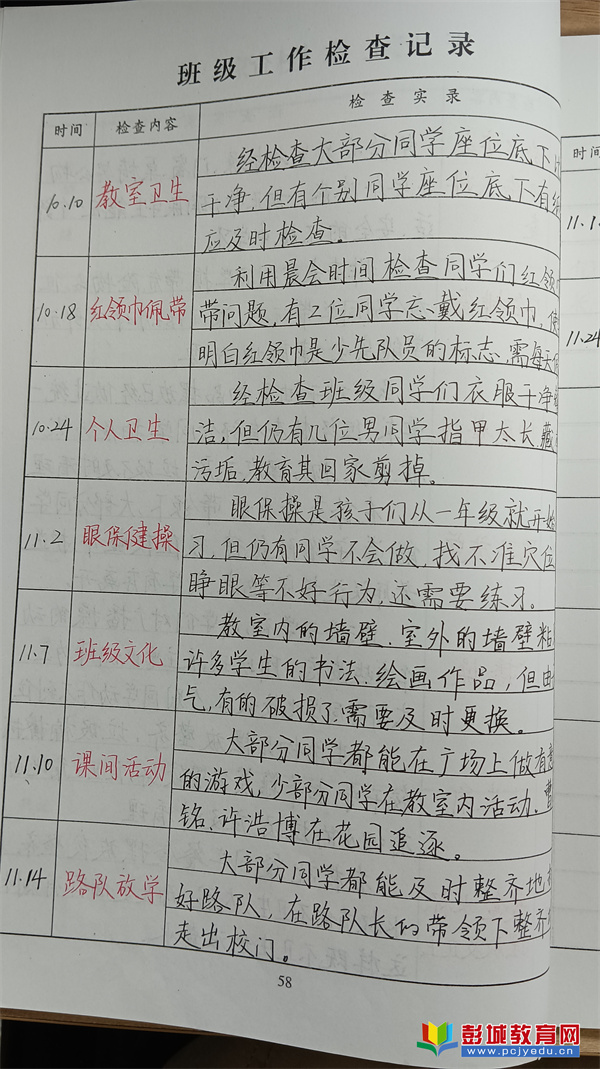 班级工作检查记录
时间 检查内容 检查实录
10.10 教室卫生
经检查大部分同学座位底下
干净,但有个别同学座位底下有
应及时检查。
10.18 红领巾佩带
利用晨会时间检查同学们红领
带问题,有2位同学忘戴红领巾,使
明白红领巾是少先队员的标志,需每天
10.24 个人卫生
经检查班级同学们衣服干净
洁,但仍有几位男同学指甲太长,藏
污垢,教育其回家剪掉。
11.2 眼保健操
眼保操是孩子们从一年级就开始
习,但仍有同学不会做,找不准穴位
睁眼等不好行为,还需要练习。
11.7 班级文化
教室内的墙壁、室外的墙壁粘
许多学生的书法、绘画作品,但由
气,有的破损了,需要及时更换。
11.10 课间活动
大部分同学都能在广场上做有
的游戏,少部分同学在教室内活动,
铭、许浩博在花园追逐。
11.14 路队放学
大部分同学都能及时整齐地
好路队,在路队长的带领下整齐
走出校门。
58
时间
11.1
11.24
彭城教育网
www.pcjyedu.cn